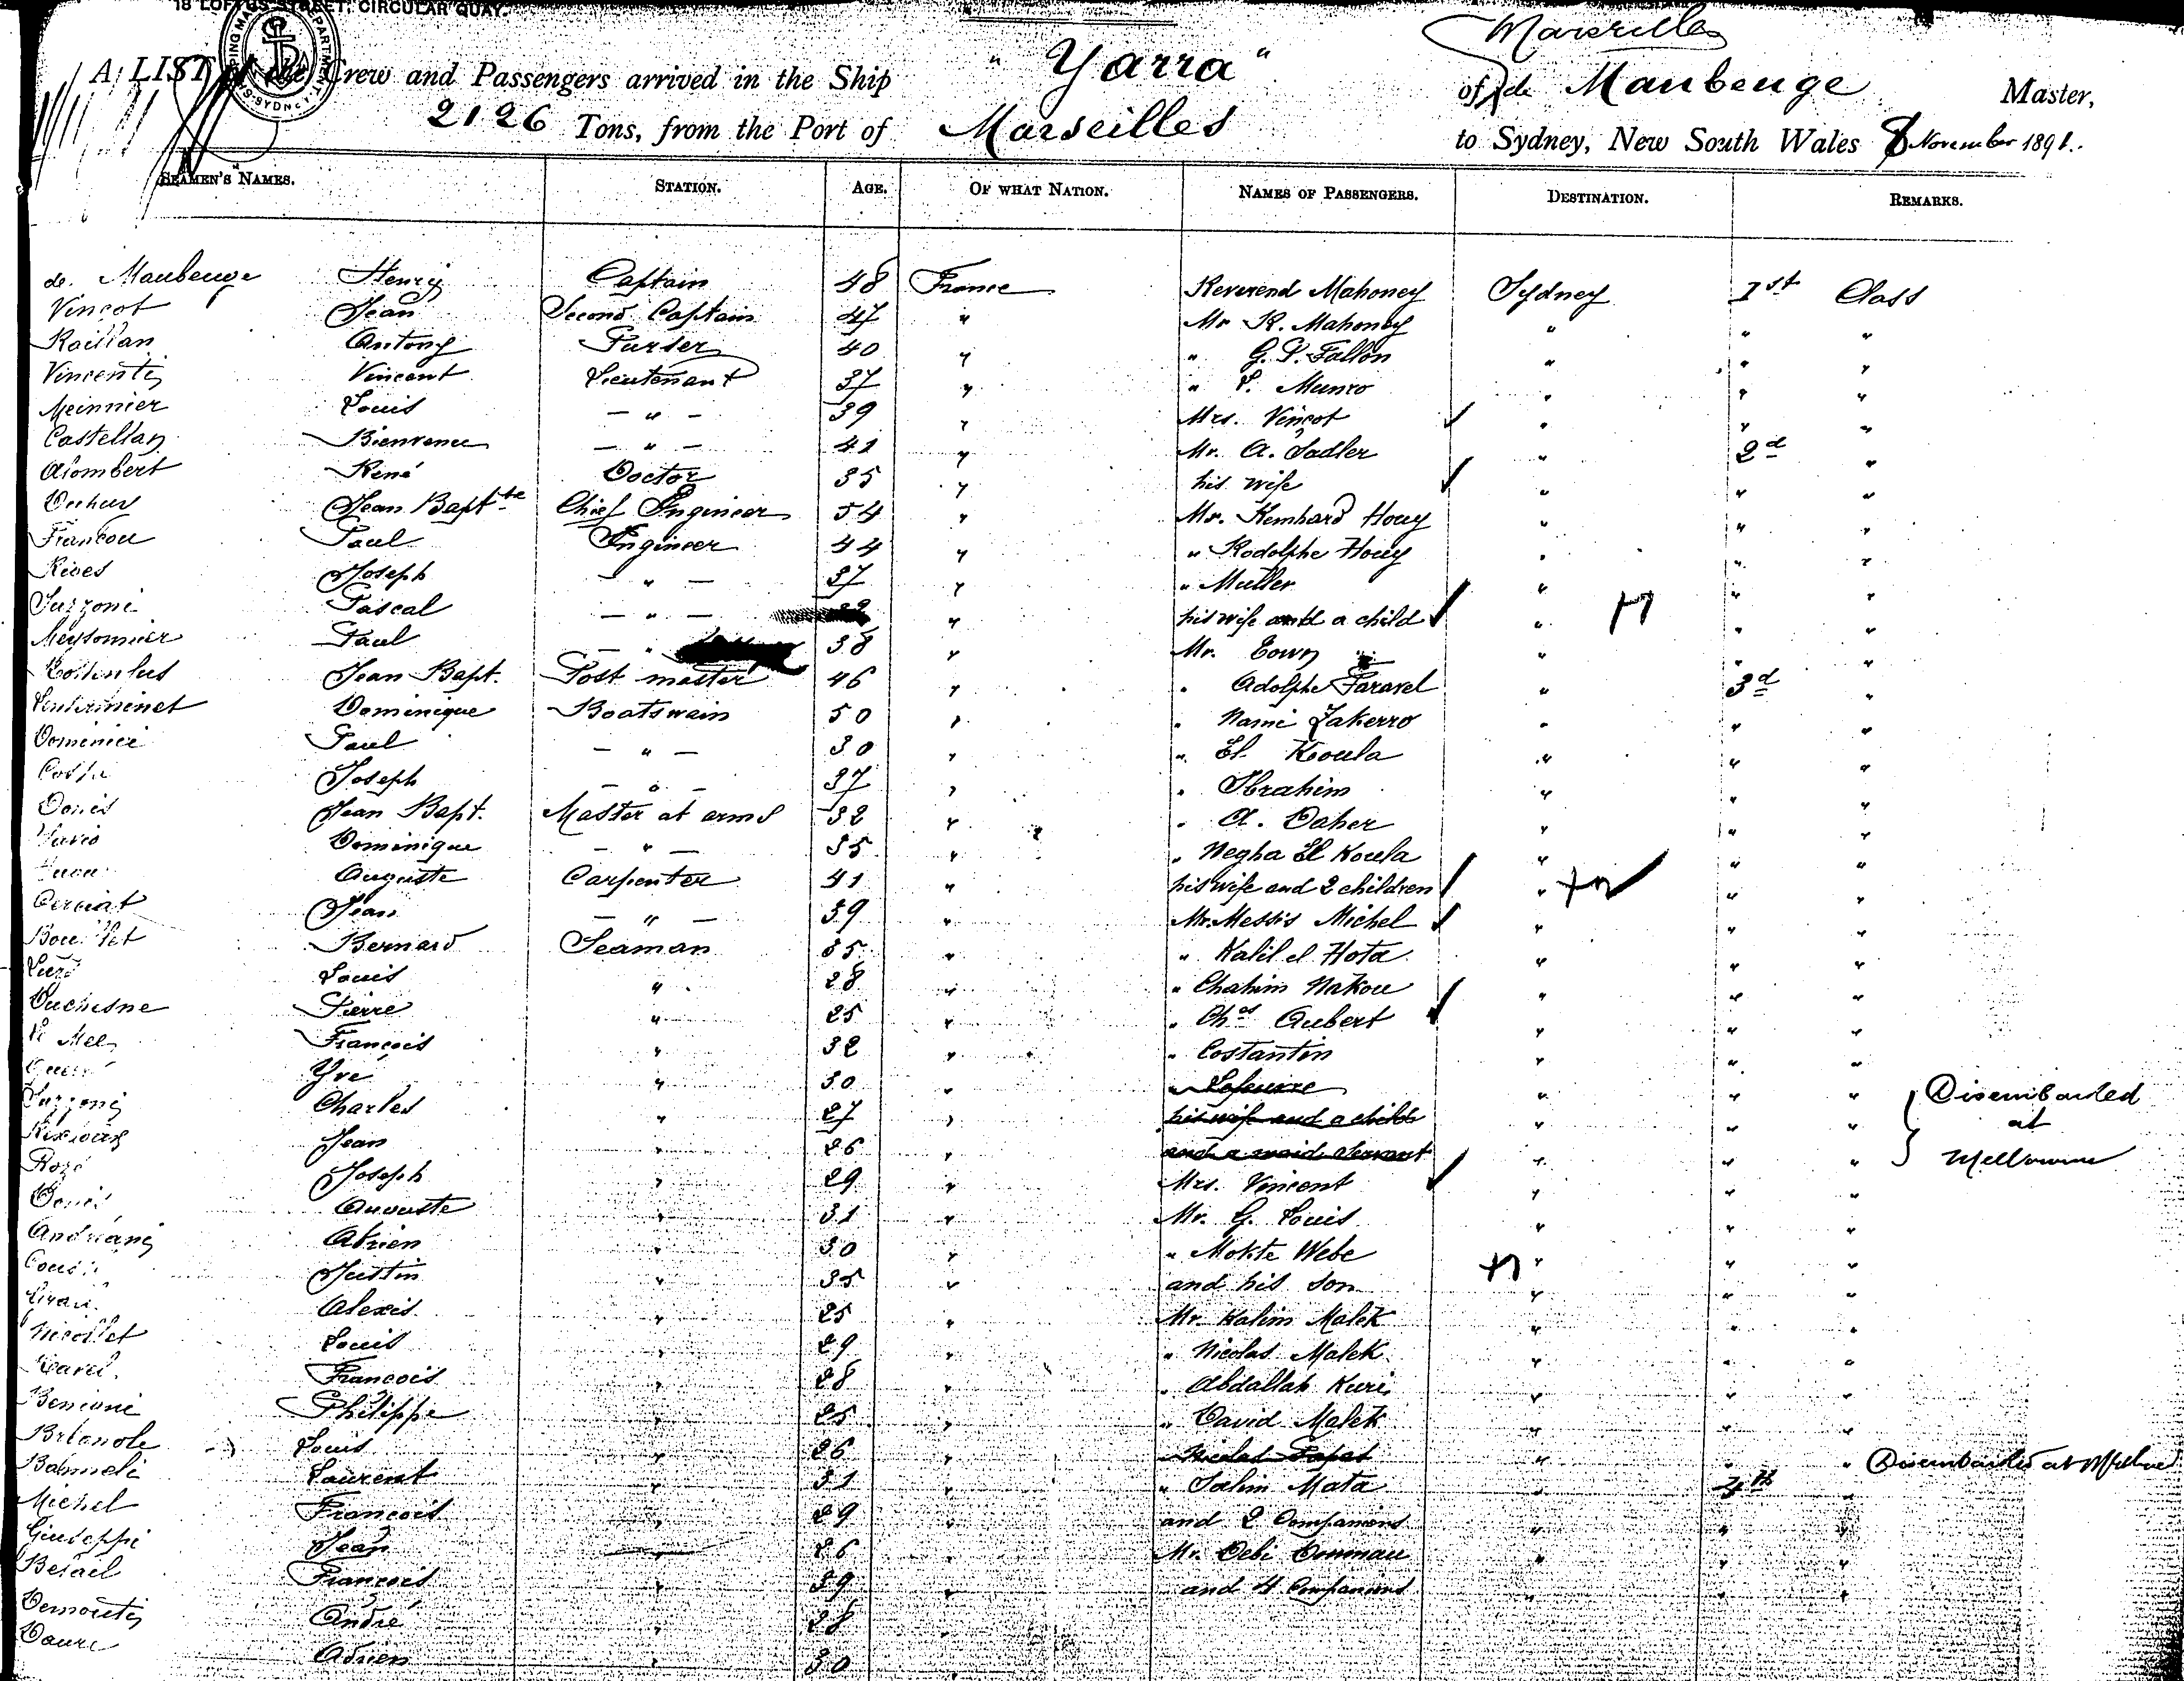 18 LOFTUS STREET, CIRCULAR QUAY.
A LIST of the Crew and Passengers arrived in the Ship "Yarra" of Marseilles de Maubeuge Master,
2126 Tons, from the Port of Marseilles to Sydney, New South Wales 8 November 1891.
SEAMEN'S NAMES. STATION. AGE. OF WHAT NATION. NAMES OF PASSENGERS. DESTINATION. REMARKS.
de Maubeuge Henry Captain 48 France Reverend Mahoney Sydney 1st Class
Vincot Jean Second Captain 47 " Mr R. Mahoney " " "
Raillan Antony Purser 40 " " G. P. Fallon " " "
Vincenti Vincent Lieutenant 37 " " P. Munro " " "
Meinnier Louis - " - 39 " Mrs. Vincot " " "
Castellan Bienvenu - " - 41 " Mr. A. Sadler " 2d "
Alombert René Doctor 35 " his wife " " "
Jean Baptte Chief Engineer 54 " Mr. Hony " " "
Francou Paul Engineer 44 " " Rodolphe Hony " " "
Rives Joseph - " - 37 " " Muller " " "
Suzzoni Pascal - " - " his wife and a child " " "
Meysonnier Paul - " 38 " Mr. " " "
Jean Bapt. Post master 46 " " Adolphe Faravel " 3d "
Dominique Boatswain 50 " " Nami Zakerro " " "
Dominici Paul - " - 30 " " El Koula " " "
Costa Joseph - " - 37 " " Ibrahim " " "
Donis Jean Bapt. Master at arms 32 " " A. Daher " " "
Dominique - " - 35 " " Negha El Koula " " "
Auguste Carpenter 41 " his wife and 2 children " " "
Jean - " - 39 " Mr. Messis Michel " " "
Bernard Seaman 35 " " Kalil el Hota " " "
Louis " 28 " " Chahim Nakou " " "
Duchesne Pierre " 25 " " Chas Aubert " " "
François " 32 " " Costantin " " "
Yvé " 30 " " Lefeuvre " " " Disembarked
Suzzoni Charles " 27 " his wife and a child " " " at
Jean " 26 " and a maid servant " " " Melbourne
Rozé Joseph " 29 " Mrs. Vincent " " "
Auguste " 31 " Mr. G. Louis " " "
Andreani Adrien " 30 " " Mokte Webe " " "
Justin " 35 " and his son " " "
Alexis " 25 " Mr. Kalim Malek " " "
Nicollet Louis " 29 " " Nicolas Malek " " "
François " 28 " " Abdallah Kuri " " "
Philippe " 25 " " David Malek " " "
Louis " 26 " Nicolas " " " Disembarked at
Laurent " 31 " " Salim Mata " 4th "
Michel François " 29 " and 2 Companions " " "
Giuseppi Jean " 26 " Mr. Debi " " "
François " 39 " and 4 Companions " " "
André " 28
Daure Adrien " 30 "